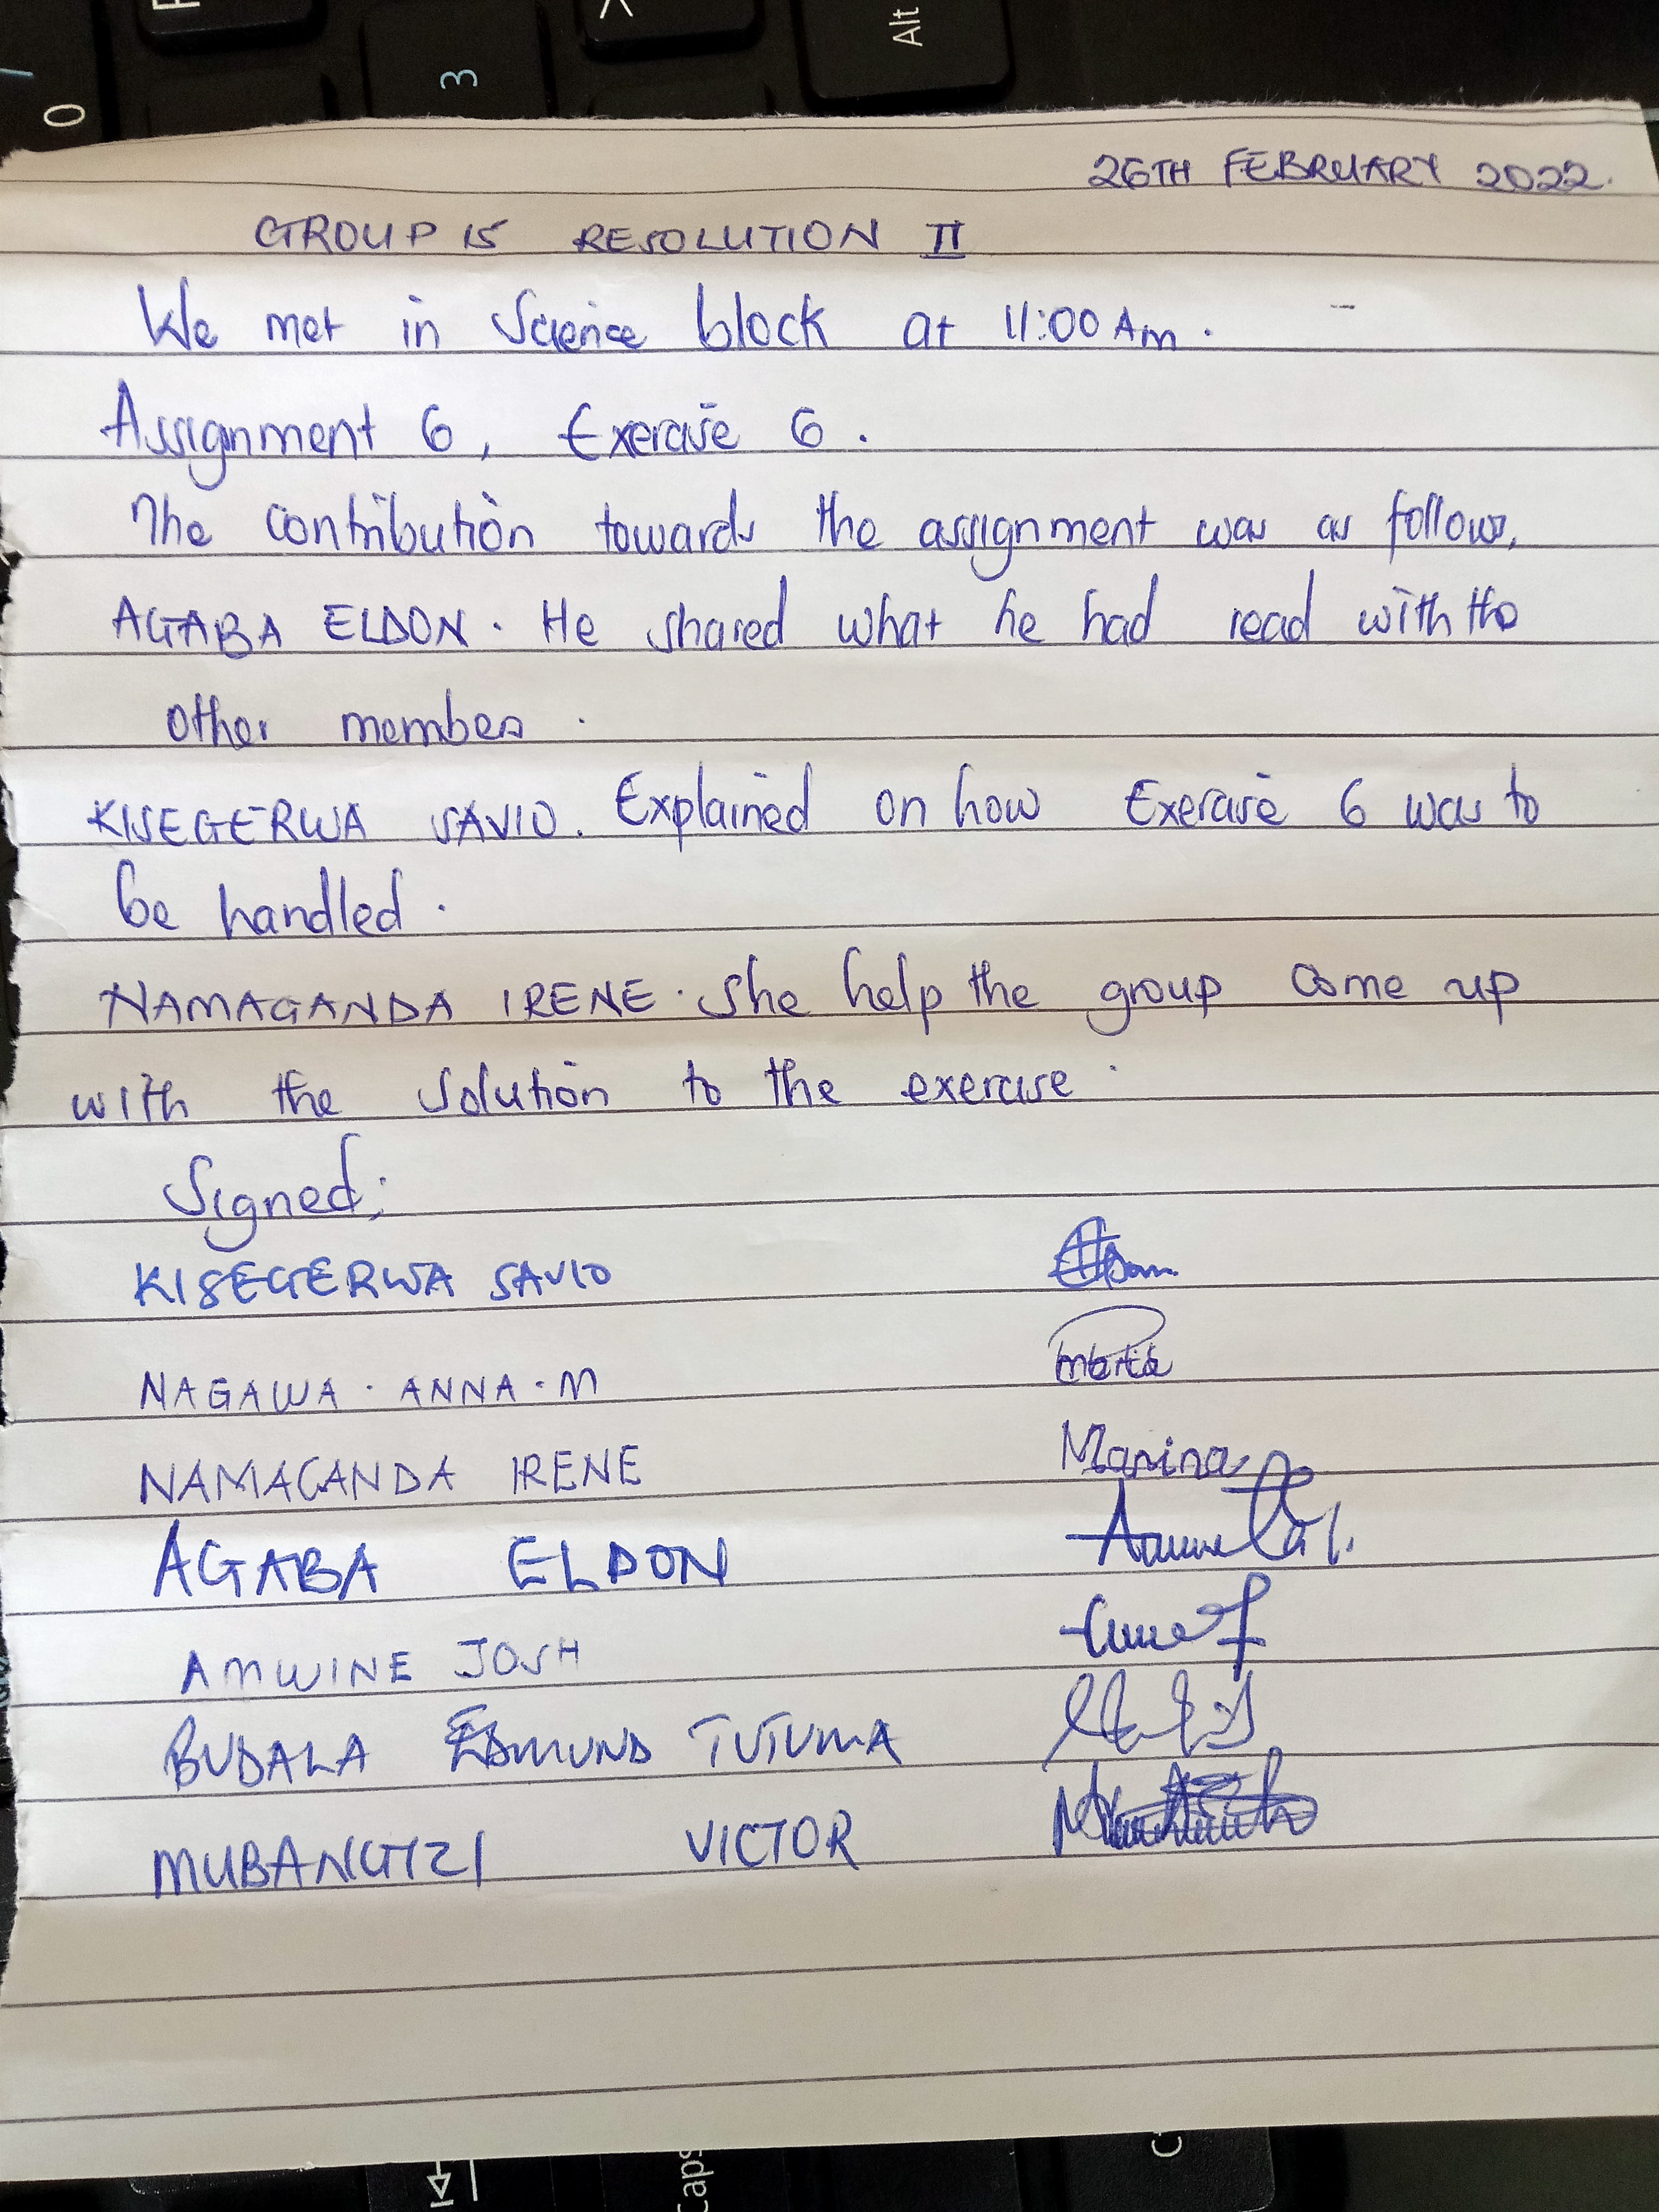 0
3
Alt
26TH FEBRUARY 2022.
GROUP 15 RESOLUTION II
We met in Science block at 11:00 Am.
Assignment 6, Exercise 6.
The contribution towards the assignment was as follows,
AGABA ELDON. He shared what he had read with the
other members.
KISEGERWA SAVIO. Explained on how Exercise 6 was to
be handled.
NAMAGANDA IRENE. She help the group come up
with the solution to the exercise.
Signed;
KISEGERWA SAVIO
NAGAWA. ANNA.M
NAMAGANDA IRENE Marina
AGABA ELDON
AMWINE JOSH
BUDALA EDMUND TUTUMA
MUBANGIZI VICTOR
Caps